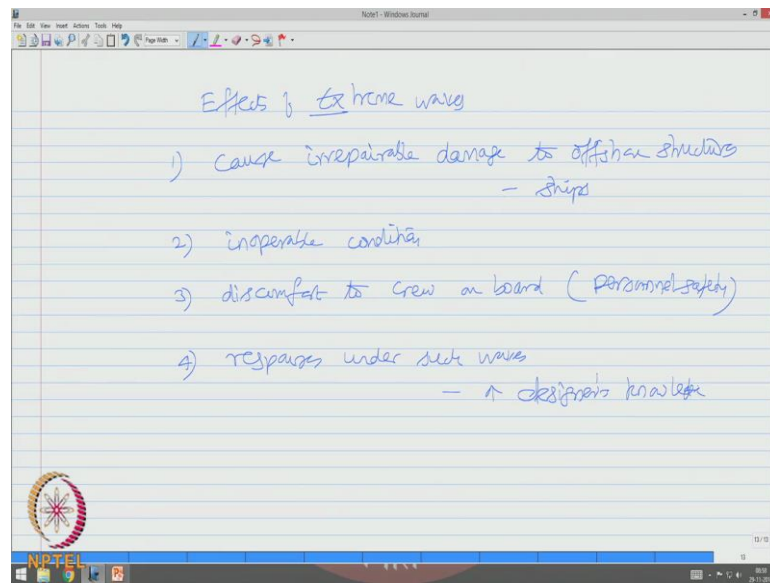 Note1 - Windows Journal
File Edit View Insert Actions Tools Help
Page Width
Effects of Extreme waves
1) cause irrepairable damage to offshore structures
- ships
2) inoperable condition
3) discomfort to crew on board (personnel safety)
4) responses under such waves
- ↑ designer's knowledge
13/13
13
NPTEL